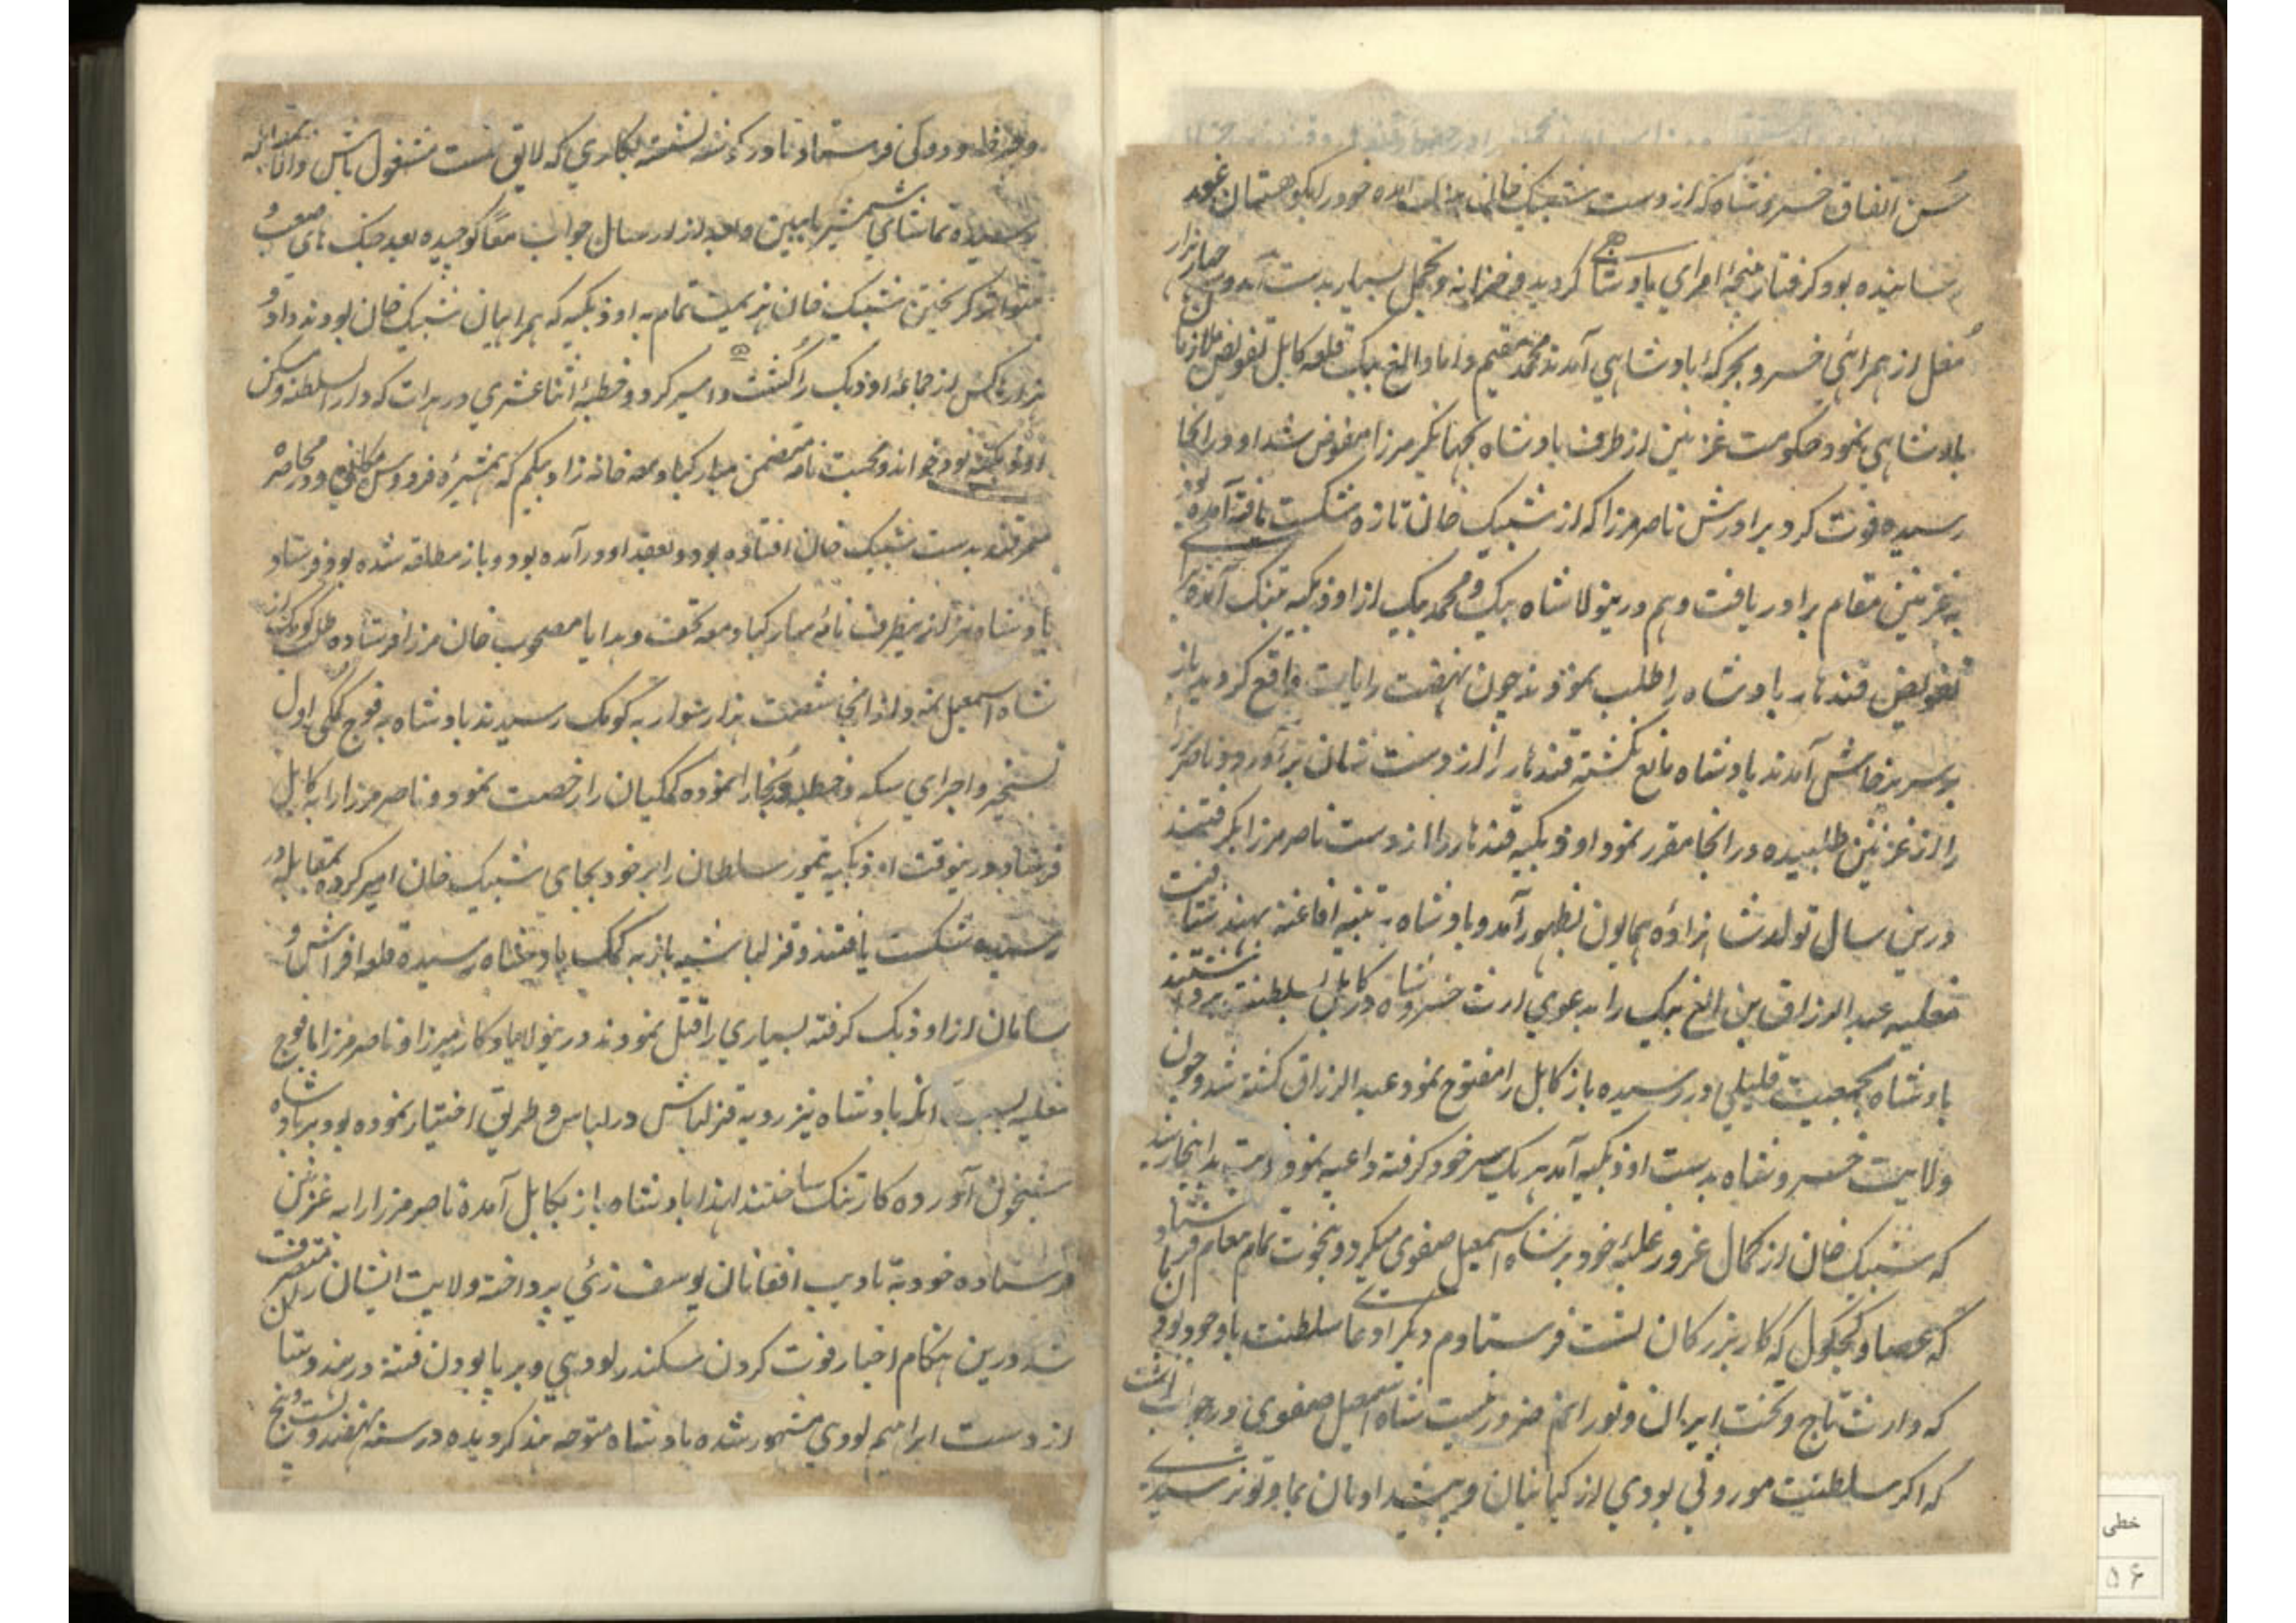 حسن اتفاق خسرو شاه که از دست شیبک خان بدانت آمده خود را بکوهستان غور
رسانیده بود گرفتار پنجهٔ امرای پادشاهی گردید و خزانه و تجمل بسیار بدست آمد و چهار هزار
مغل از همراهی خسرو بجرگهٔ پادشاهی آمدند محمد مقیم داماد الغ بیک قلعه کابل تفویض ملازمان
پادشاهی نمود حکومت غزنین از طرف پادشاه بجهانگیر مرزا مفوض شد او در آنجا
رسیده فوت کرد برادرش ناصر مرزا که از شیبک خان تازه شکست یافته آمده بود
به غزنین مقام برادر یافت و هم درینولا شاه بیک و محمد بیک از اوزبکیه بتنگ آمده برای
تفویض قندهار پادشاه را طلب نمودند چون نهضت رایات واقع گردید باز
بر سر پرخاش آمدند پادشاه مانع نگشته قندهار را از دست شان برآورد و ناصر مرزا
را از غزنین طلبیده در آنجا مقرر نمود اوزبکیه قندهار را از دست ناصر مرزا بگرفتند
درین سال تولد شاهزاده همایون بظهور آمد و پادشاه به تنبیه افاغنه بهند شتافت
مغلیه عبدالرزاق بن الغ بیک را بدعوی ارث خسرو شاه در کابل بسلطنت برداشتند
پادشاه بجمعیت قلیلی در رسیده باز کابل را مفتوح نمود عبدالرزاق کشته شد و چون
ولایت خسرو شاه بدست اوزبکیه آمد هر یک سر خود گرفته داعیه نمود نوبت بدانجا رسید
که شیبک خان از کمال غرور غلبهٔ خود بر شاه اسمعیل صفوی میکرد و بنخوت تمام پیغام فرستاد
که عصا و کجکول که کار بزرگان تست فرستادم دیگر ادعای سلطنت با وجود بودن ما
که وارث تاج و تخت ایران و تورانم ضرور نیست شاه اسمعیل صفوی در جواب نوشت
که اگر سلطنت موروثی بودی از کیانیان و پیشدادیان بما و تو نرسیدی
و چرخه و دوکی فرستاد تا در گوشه نشسته بکاری که لایق تست مشغول باش و انا بمقابله
رسیده تماشای شمشیر ما ببین و بعد از ارسال جواب معاً کوچیده بعد جنگ های صعب و
متواتر گریختن شیبک خان هزیمت تمام به اوزبکیه که همراهیان شیبک خان بودند داد و
هزارها کس از جماعهٔ اوزبک را کشت و اسیر کرد و خطبهٔ اثناعشری در هرات که دارالسلطنه و مسکن
اوزبکیه بود خواند و محبت نامه متضمن مبارکباد معه خانزاد بیگم که همشیرهٔ فردوس مکانی بود و در محاصره
سمرقند بدست شیبک خان افتاده بود و بعقد او در آمده بود و باز مطلقه شده بود فرستاد
پادشاه نیز از ینطرف نامهٔ مبارکباد معه تحف و هدایا مصحوب خان مرزا فرستاده طلب کومک از
شاه اسمعیل نمود از آنجا شصت هزار سوار به کومک رسیدند پادشاه به فوج کمکی اول
تسخیر و اجرای سکه و خطبه بخارا نموده کمکیان را رخصت نمود و ناصر مرزا را به کابل
فرستاد درینوقت اوزبکیه تیمور سلطان را بر خود بجای شیبک خان امیر کرده بمقابله در
رسیده شکست یافتند و قزلباشیه باز به کمک پادشاه رسیده قلعه افراش و
سامان از اوزبک گرفته بسیاری را قتل نمودند درینولا یادگار میرزا و ناصر مرزا با فوج
مغلیه بسبب آنکه پادشاه نیز رویه قزلباش در لباس و طریق اختیار نموده بود بر پادشاه
شبخون آورده کار تنگ ساختند لهذا پادشاه باز بکابل آمده ناصر مرزا را به غزنین
فرستاده خود به تادیب افغانان یوسف زئی پرداخته ولایت ایشان را متصرف
شد درین هنگام اخبار فوت کردن سکندر لودهی و برپا بودن فتنه در هندوستان
از دست ابراهیم لودی مشهور شده پادشاه متوجه هند گردیده در سنه نهصد و بست و پنج
خطی
۵۶